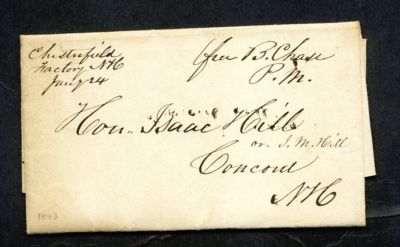 Chesterfield
Factory NH
Jany 24
free B. Chase
P.M.
Hon. Isaac Hill
or J. M. Hill
Concord
NH
1843